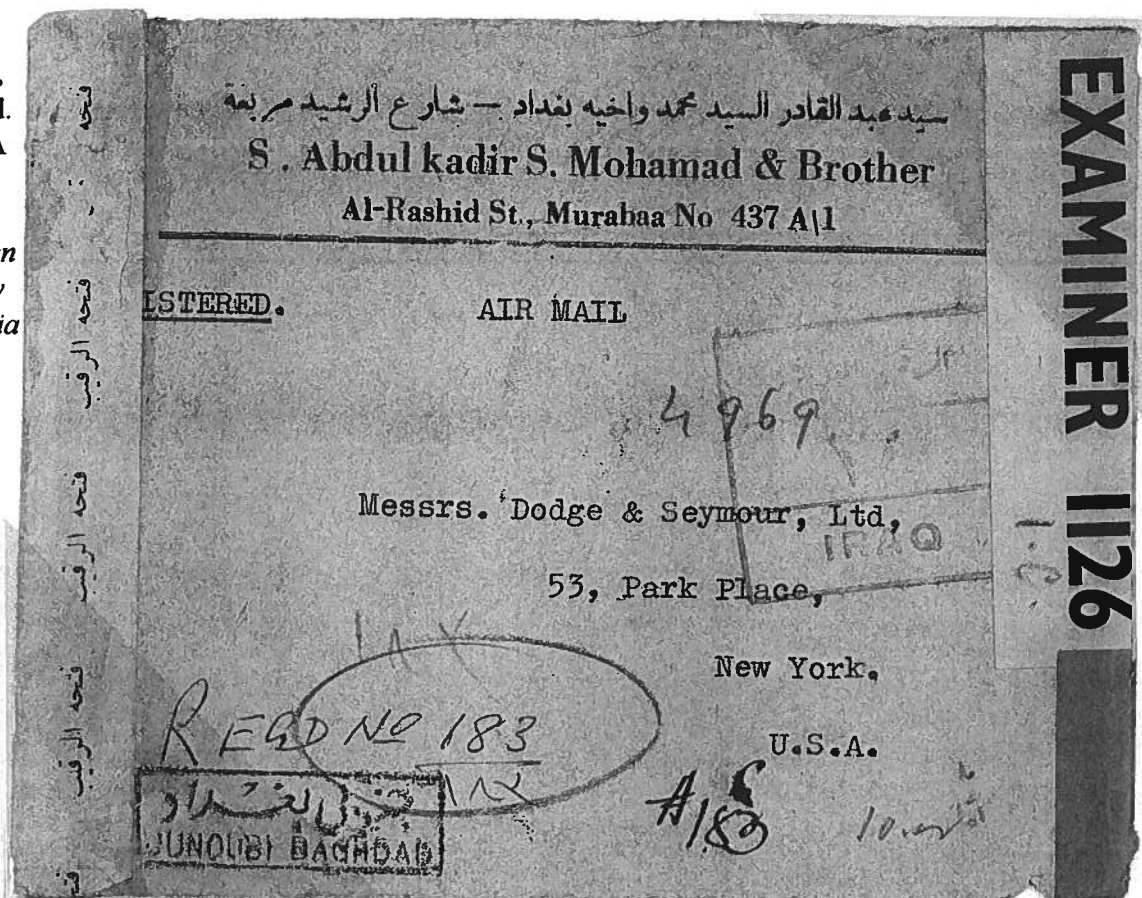 سيد عبد القادر السيد محمد واخيه بغداد — شارع الرشيد مربعة
S. Abdul kadir S. Mohamad & Brother
Al-Rashid St., Murabaa No 437 A\1
ISTERED.
AIR MAIL
4969
Messrs. Dodge & Seymour, Ltd,
IRAQ
53, Park Place,
New York.
U.S.A.
REGD No 183
١٨٣
JUNOUBI BAGHDAD
EXAMINER 1126
فتحه
فتحه الرقيب
فتحه الرقيب
فتحه الرقيب